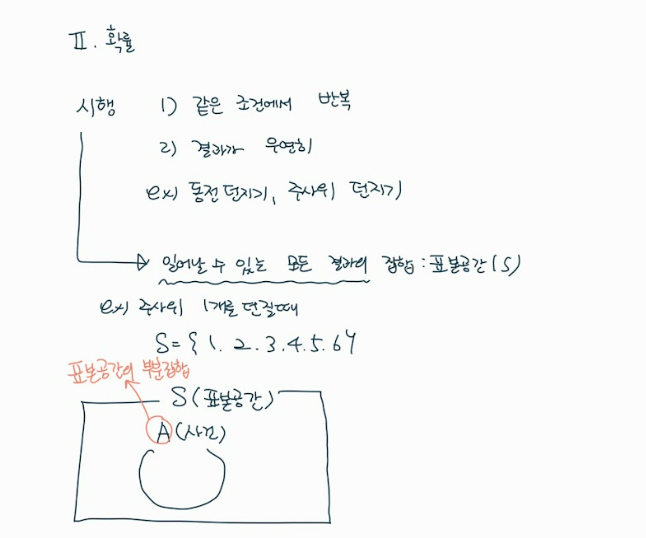 Ⅱ. 확률
시행 1) 같은 조건에서 반복
2) 결과가 우연히
ex) 동전던지기, 주사위 던지기
일어날 수 있는 모든 결과의 집합 : 표본공간(S)
ex) 주사위 1개를 던질때
S={1.2.3.4.5.6}
표본공간의 부분집합
S(표본공간)
A(사건)